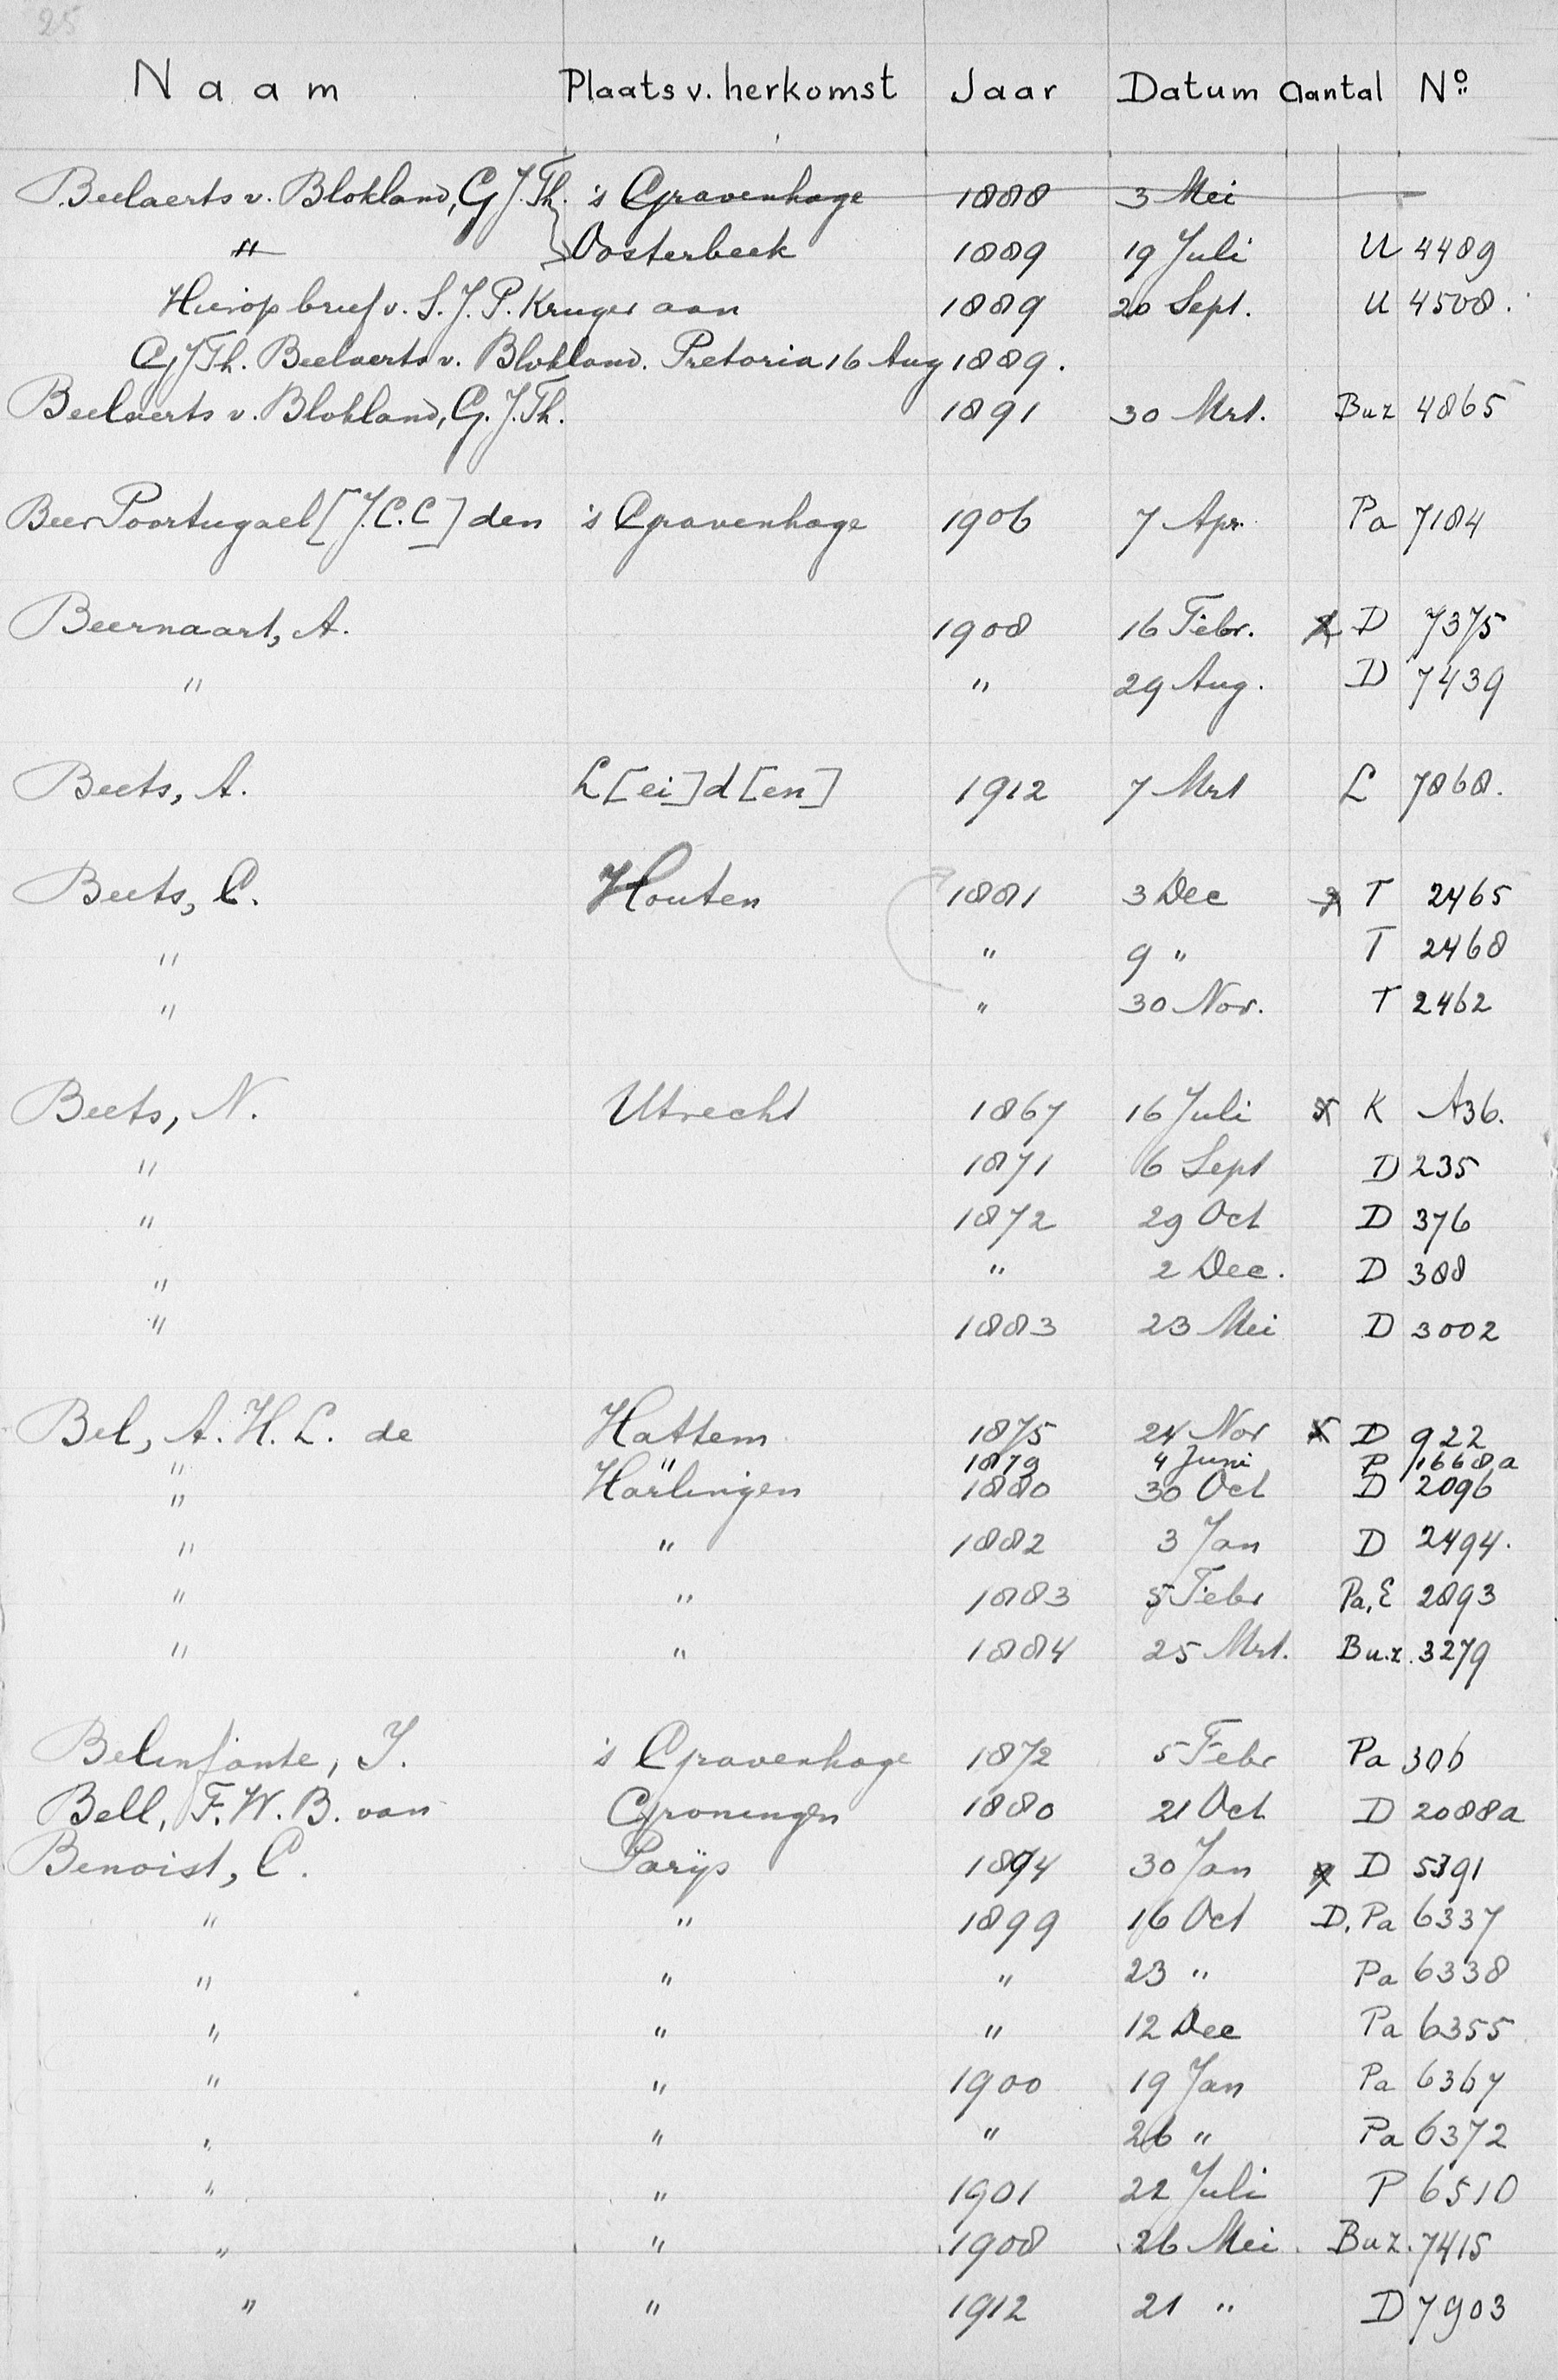 25
Naam Plaats v. herkomst Jaar Datum Aantal No
Beelaerts v. Blokland, G. J. Th. 's Gravenhage 1888 3 Mei
" Oosterbeek 1889 19 Juli U 4489
Hierop brief v. S. J. P. Kruger aan 1889 20 Sept. U 4508.
G J Th. Beelaerts v. Blokland. Pretoria 16 Aug 1889.
Beelaerts v. Blokland, G. J. Th. 1891 30 Mrt. Buz 4865
Beer Poortugael [J.C.C] den 's Gravenhage 1906 7 Apr. Pa 7184
Beernaart, A. 1908 16 Febr. 2 D 7375
" " 29 Aug. D 7439
Beets, A. L[ei]d[en] 1912 7 Mrt L 7868.
Beets, C. Houten 1881 3 Dec 3 T 2465
" " 9 " T 2468
" " 30 Nov. T 2462
Beets, N. Utrecht 1867 16 Juli 5 K A36.
" 1871 6 Sept D 235
" 1872 29 Oct D 376
" " 2 Dec. D 388
" 1883 23 Mei D 3002
Bel, A. H. L. de Hattem 1875 24 Nov 5 D 922
" " 1879 4 Juni P 1668a
" Harlingen 1880 30 Oct D 2096
" " 1882 3 Jan D 2494.
" " 1883 5 Febr Pa, E 2893
" " 1884 25 Mrt. Bu.z. 3279
Belinfante, J. 's Gravenhage 1872 5 Febr Pa 306
Bell, F. W. B. van Groningen 1880 21 Oct D 2088a
Benoist, C. Parijs 1894 30 Jan 9 D 5391
" " 1899 16 Oct D, Pa 6337
" " " 23 " Pa 6338
" " " 12 Dec Pa 6355
" " 1900 19 Jan Pa 6367
" " " 26 " Pa 6372
" " 1901 22 Juli P 6510
" " 1908 26 Mei. Buz. 7415
" " 1912 21 " D 7903